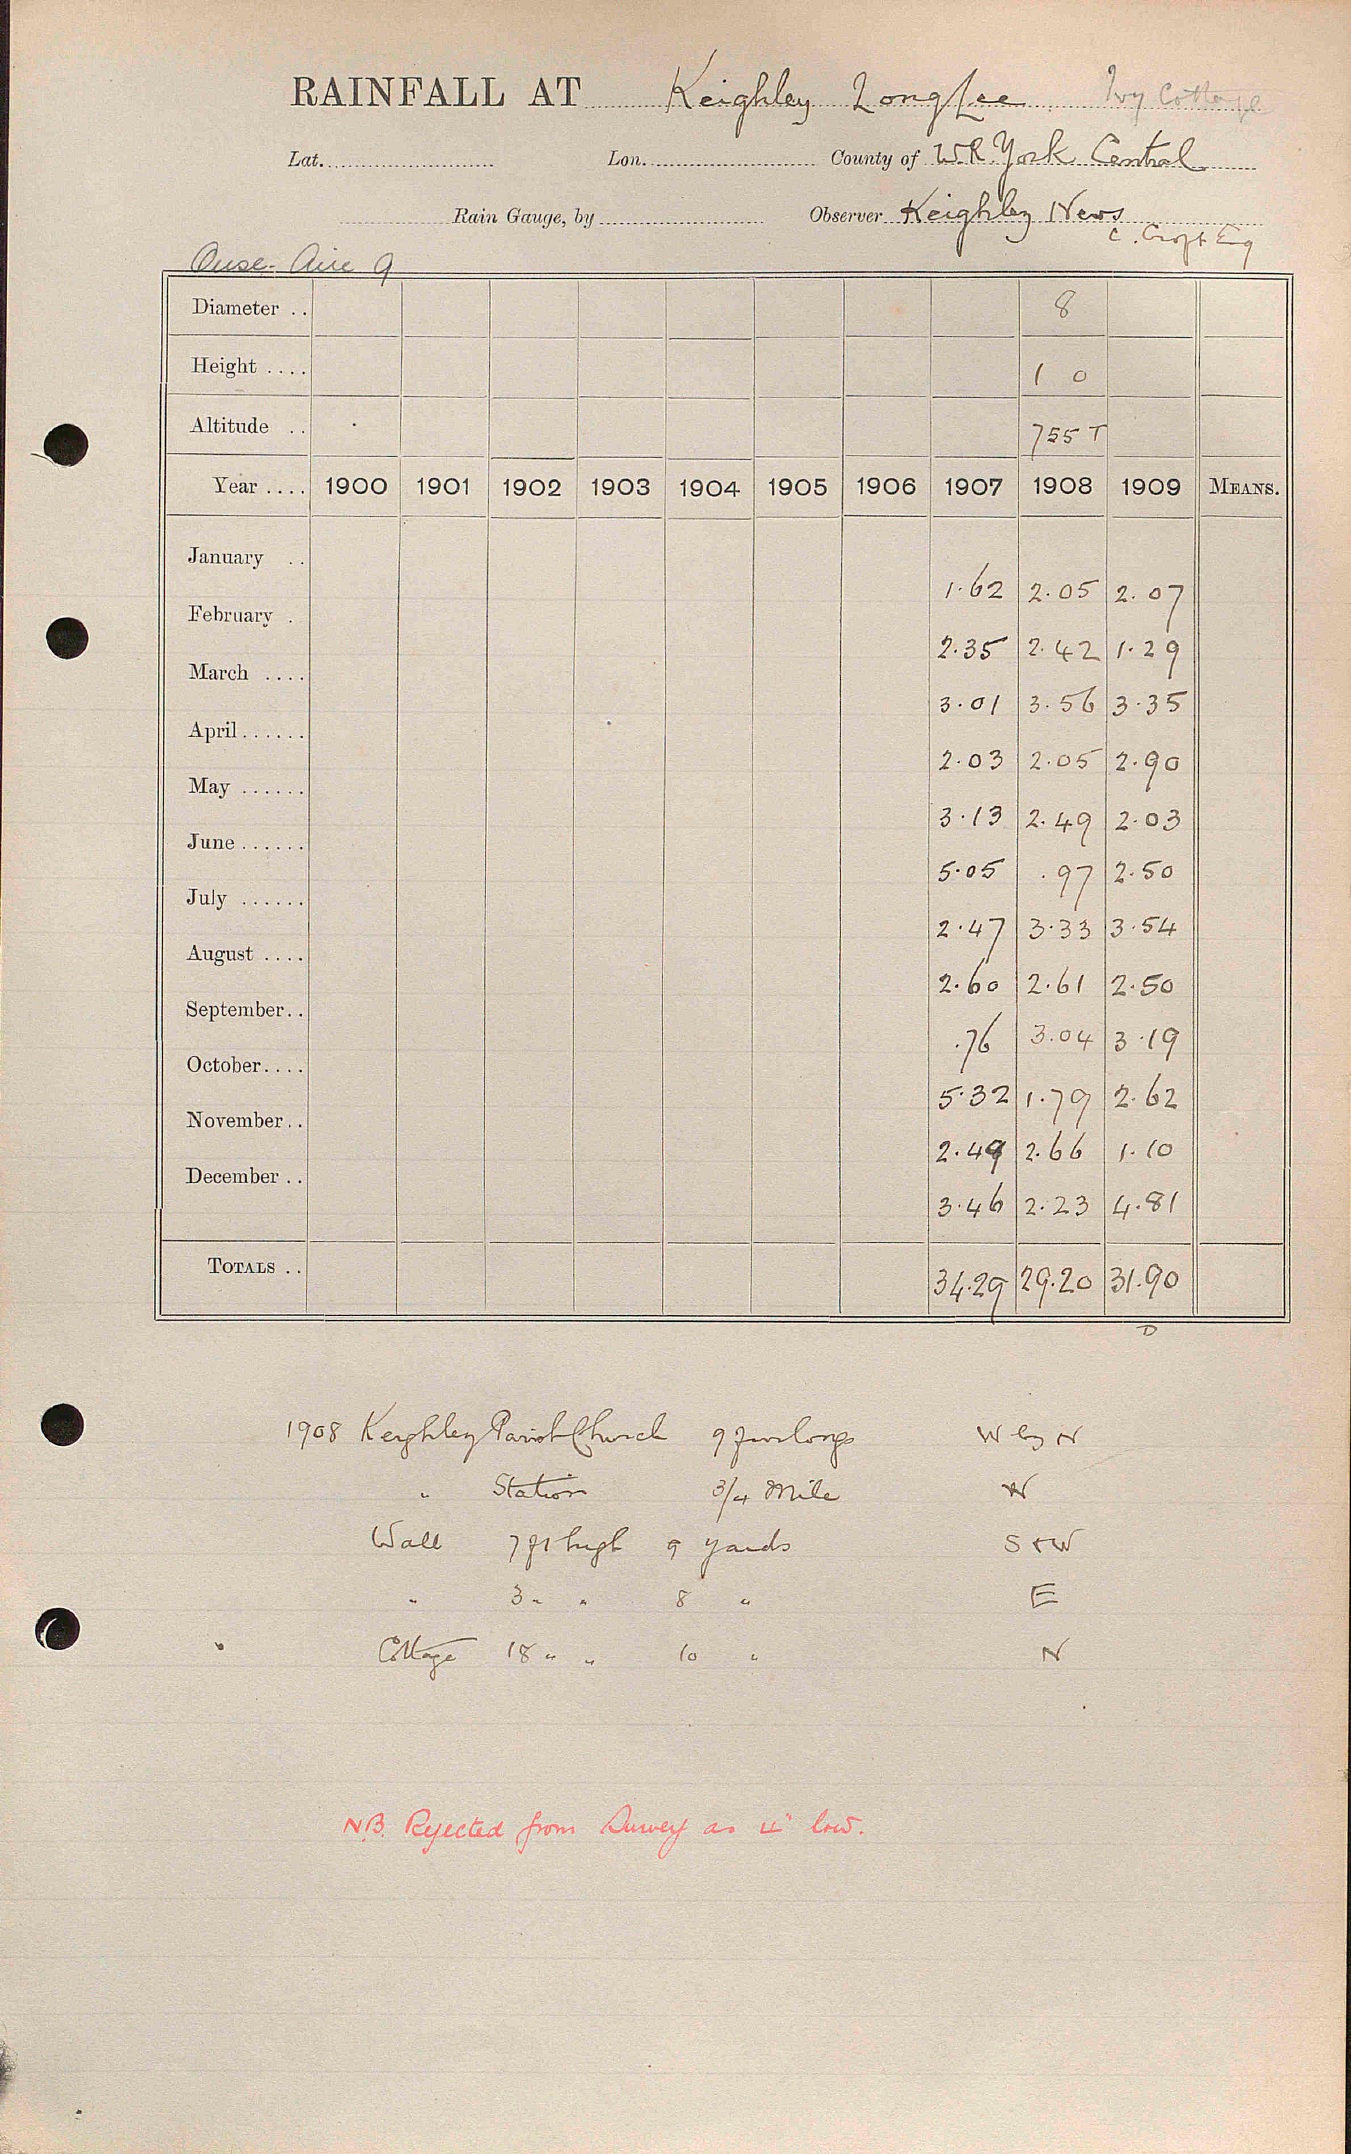 RAINFALL AT Keighley Long Lee Ivy Cottage
Lat. Lon. County of W.R. York Central
Rain Gauge, by Observer Keighley News
C. Croft Esq
Ouse-Aire 9
Diameter .. 8
Height .... 1 0
Altitude .. 755 T
Year .... 1900 1901 1902 1903 1904 1905 1906 1907 1908 1909 MEANS.
January .. 1.62 2.05 2.07
February . 2.35 2.42 1.29
March .... 3.01 3.56 3.35
April...... 2.03 2.05 2.90
May ...... 3.13 2.49 2.03
June ...... 5.05 .97 2.50
July ...... 2.47 3.33 3.54
August .... 2.60 2.61 2.50
September.. .76 3.04 3.19
October.... 5.32 1.79 2.62
November.. 2.49 2.66 1.10
December .. 3.46 2.23 4.81
TOTALS .. 34.29 29.20 31.90
D
1908 Keighley Parish Church 9 furlongs W by N
" Station 3/4 Mile N
Wall 7 ft high 9 yards S & W
" 3 " " 8 " E
Cottage 18 " " 10 " N
N.B. Rejected from Survey as 4" low.